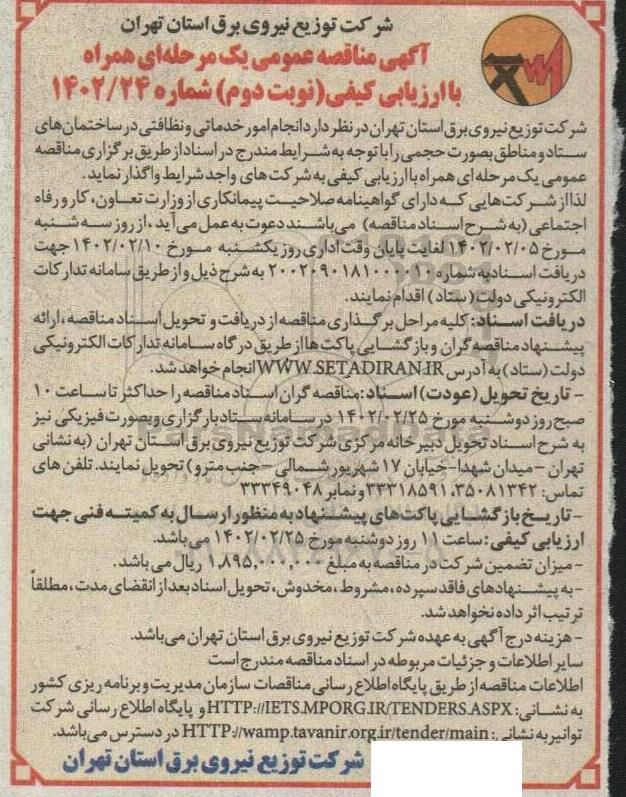 شرکت توزیع نیروی برق استان تهران
آگهی مناقصه عمومی یک مرحله‌ای همراه
با ارزیابی کیفی (نوبت دوم) شماره ۱۴۰۲/۲۴
شرکت توزیع نیروی برق استان تهران در نظر دارد انجام امور خدماتی و نظافتی در ساختمان های
ستاد و مناطق بصورت حجمی را با توجه به شرایط مندرج در اسناد از طریق برگزاری مناقصه
عمومی یک مرحله ای همراه با ارزیابی کیفی به شرکت های واجد شرایط واگذار نماید.
لذا از شرکت هایی که دارای گواهینامه صلاحیت پیمانکاری از وزارت تعاون، کار و رفاه
اجتماعی (به شرح اسناد مناقصه) می باشند دعوت به عمل می آید، از روز سه شنبه
مورخ ۱۴۰۲/۰۲/۰۵ لغایت پایان وقت اداری روز یکشنبه مورخ ۱۴۰۲/۰۲/۱۰ جهت
دریافت اسناد به شماره ۲۰۰۲۰۹۰۱۸۱۰۰۰۰۱۰ به شرح ذیل و از طریق سامانه تدارکات
الکترونیکی دولت (ستاد) اقدام نمایند.
دریافت اسناد: کلیه مراحل برگذاری مناقصه از دریافت و تحویل اسناد مناقصه، ارائه
پیشنهاد مناقصه گران و بازگشایی پاکت ها از طریق درگاه سامانه تدارکات الکترونیکی
دولت (ستاد) به آدرس WWW.SETADIRAN.IR انجام خواهد شد.
- تاریخ تحویل (عودت) اسناد: مناقصه گران اسناد مناقصه را حداکثر تا ساعت ۱۰
صبح روز دوشنبه مورخ ۱۴۰۲/۰۲/۲۵ در سامانه ستاد بارگزاری و بصورت فیزیکی نیز
به شرح اسناد تحویل دبیرخانه مرکزی شرکت توزیع نیروی برق استان تهران (به نشانی
تهران - میدان شهدا - خیابان ۱۷ شهریور شمالی - جنب مترو) تحویل نمایند. تلفن های
تماس: ۳۵۰۸۱۳۴۲، ۳۳۳۱۸۵۹۱ و نمابر ۳۳۳۴۹۰۴۸
- تاریخ بازگشایی پاکت های پیشنهاد به منظور ارسال به کمیته فنی جهت
ارزیابی کیفی: ساعت ۱۱ روز دوشنبه مورخ ۱۴۰۲/۰۲/۲۵ می باشد.
- میزان تضمین شرکت در مناقصه به مبلغ ۱,۸۹۵,۰۰۰,۰۰۰ ریال می باشد.
- به پیشنهادهای فاقد سپرده، مشروط، مخدوش، تحویل اسناد بعد از انقضای مدت، مطلقاً
ترتیب اثر داده نخواهد شد.
- هزینه درج آگهی به عهده شرکت توزیع نیروی برق استان تهران می باشد.
سایر اطلاعات و جزئیات مربوطه در اسناد مناقصه مندرج است
اطلاعات مناقصه از طریق پایگاه اطلاع رسانی مناقصات سازمان مدیریت و برنامه ریزی کشور
به نشانی: HTTP://IETS.MPORG.IR/TENDERS.ASPX و پایگاه اطلاع رسانی شرکت
توانیر به نشانی: HTTP://wamp.tavanir.org.ir/tender/main در دسترس می باشد.
شرکت توزیع نیروی برق استان تهران